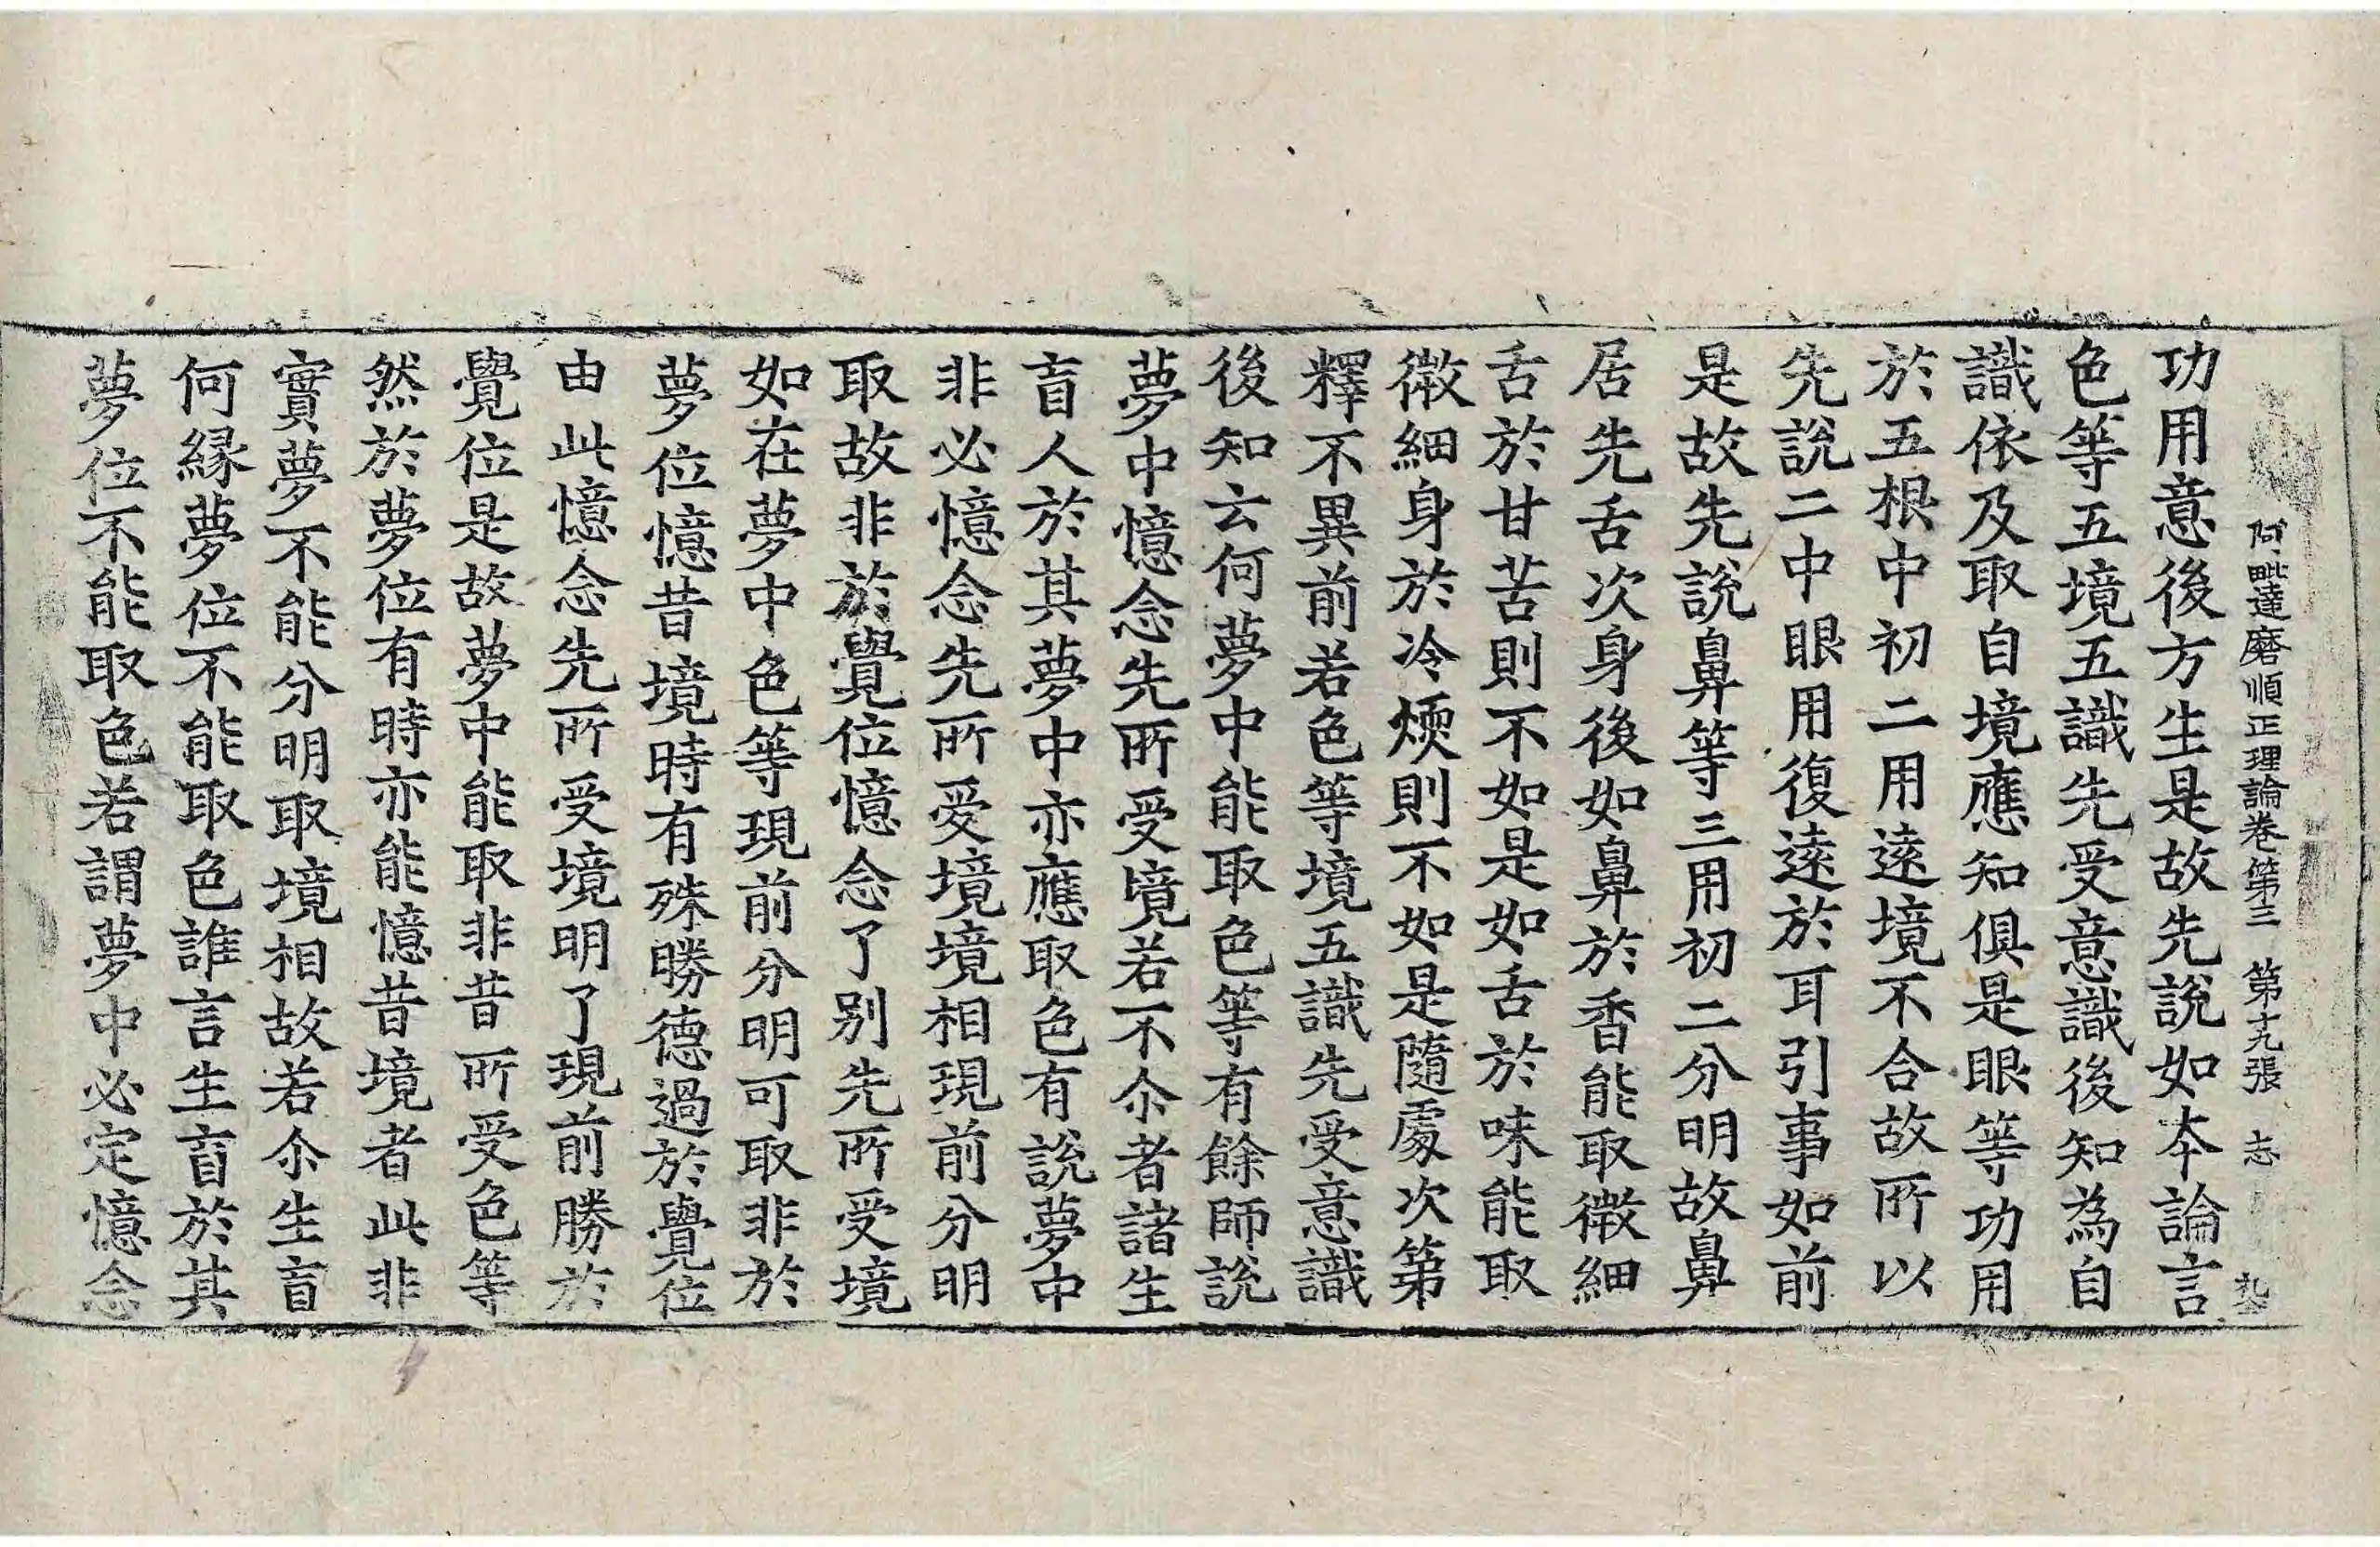 阿毗達磨順正理論卷第三 第十九張 志
功用意後方生是故先說如本論言
色等五境五識先受意識後知為自
識依及取自境應知俱是眼等功用
於五根中初二用遠境不合故所以
先說二中眼用復遠於耳引事如前
是故先說鼻等三用初二分明故鼻
居先舌次身後如鼻於香能取微細
舌於甘苦則不如是如舌於味能取
微細身於冷煗則不如是隨處次第
釋不異前若色等境五識先受意識
後知云何夢中能取色等有餘師說
夢中憶念先所受境若不尒者諸生
盲人於其夢中亦應取色有說夢中
非必憶念先所受境境相現前分明
取故非於覺位憶念了別先所受境
如在夢中色等現前分明可取非於
夢位憶昔境時有殊勝德過於覺位
由此憶念先所受境明了現前勝於
覺位是故夢中能取非昔所受色等
然於夢位有時亦能憶昔境者此非
實夢不能分明取境相故若尒生盲
何緣夢位不能取色誰言生盲於其
夢位不能取色若謂夢中必定憶念